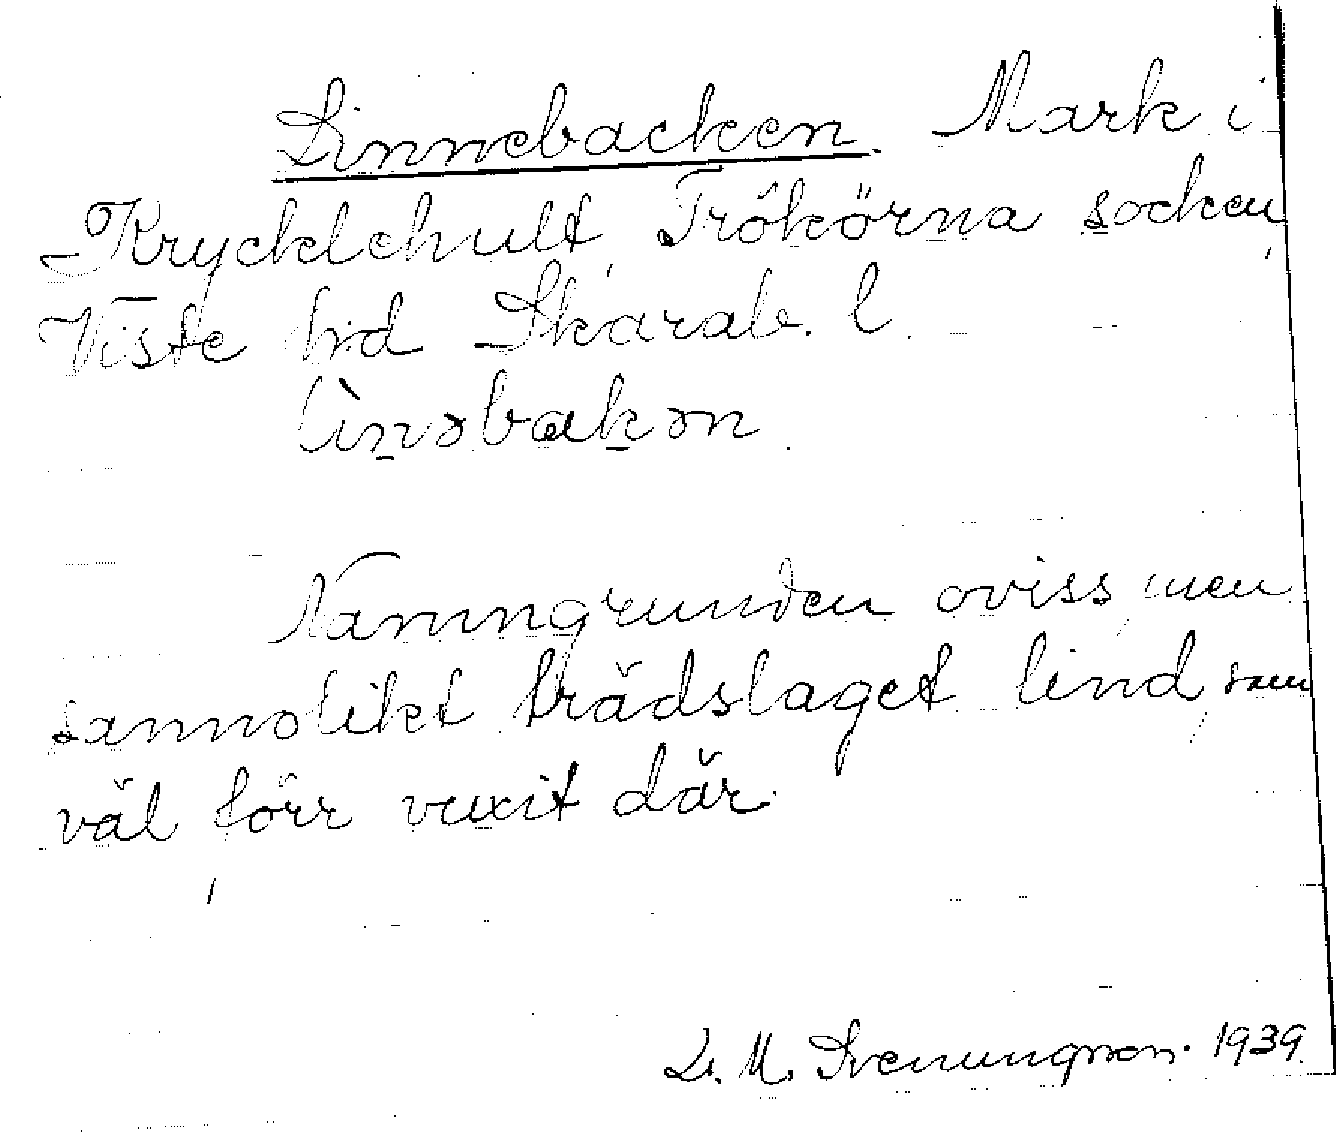 Linnebacken. Mark i
Krycklehult, Trökörna socken,
Viste hd Skarab. l.
lìnəbakən.
Namngrunden oviss, men
sannolikt trädslaget lind, som
väl förr vuxit där.
L. M. Svenungsson. 1939.